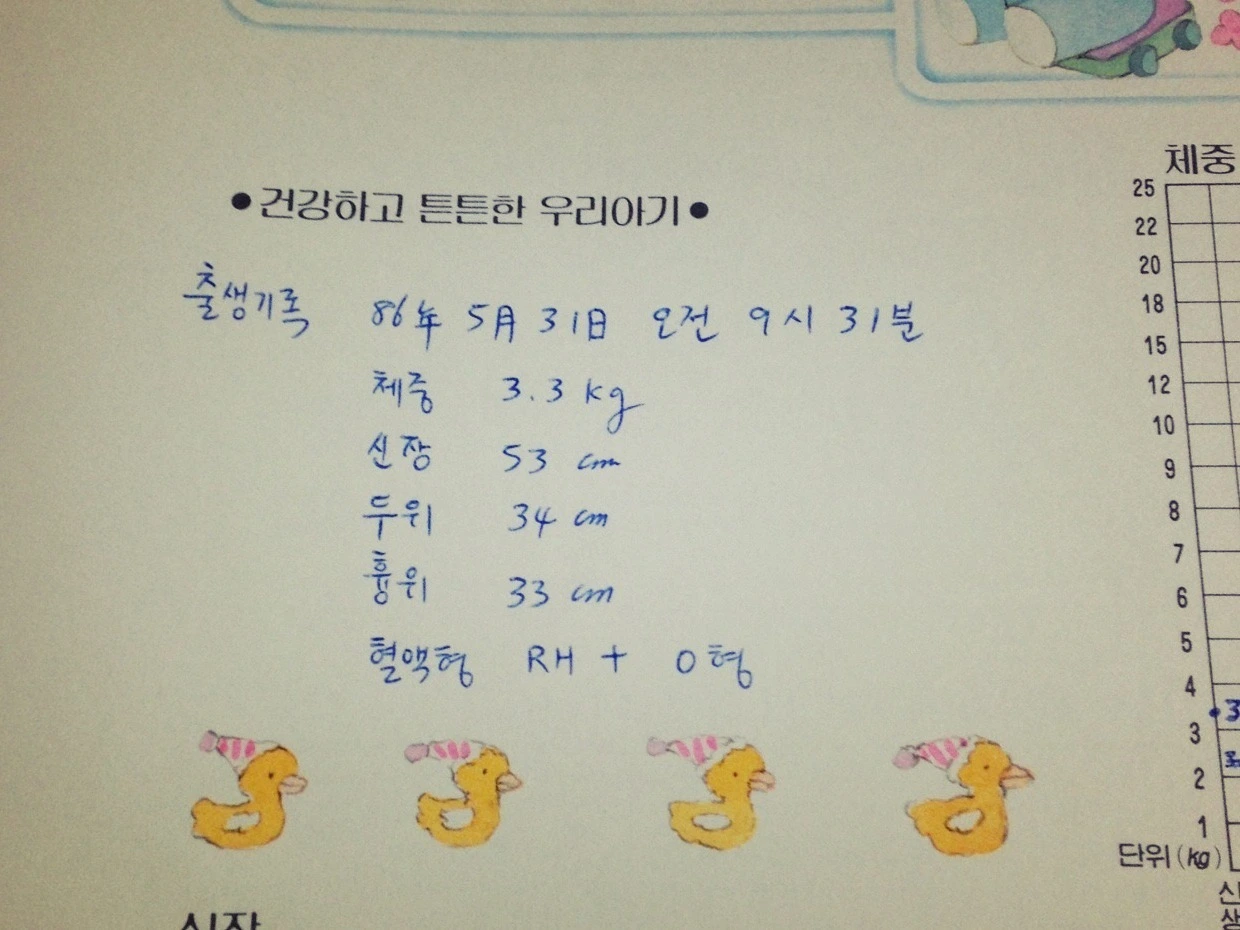 ●건강하고 튼튼한 우리아기●
출생기록 86年 5月 31日 오전 9시 31분
체중 3.3 kg
신장 53 cm
두위 34 cm
흉위 33 cm
혈액형 RH + O형
체중
25
22
20
18
15
12
10
9
8
7
6
5
4
3
2
1
단위(kg)
신장